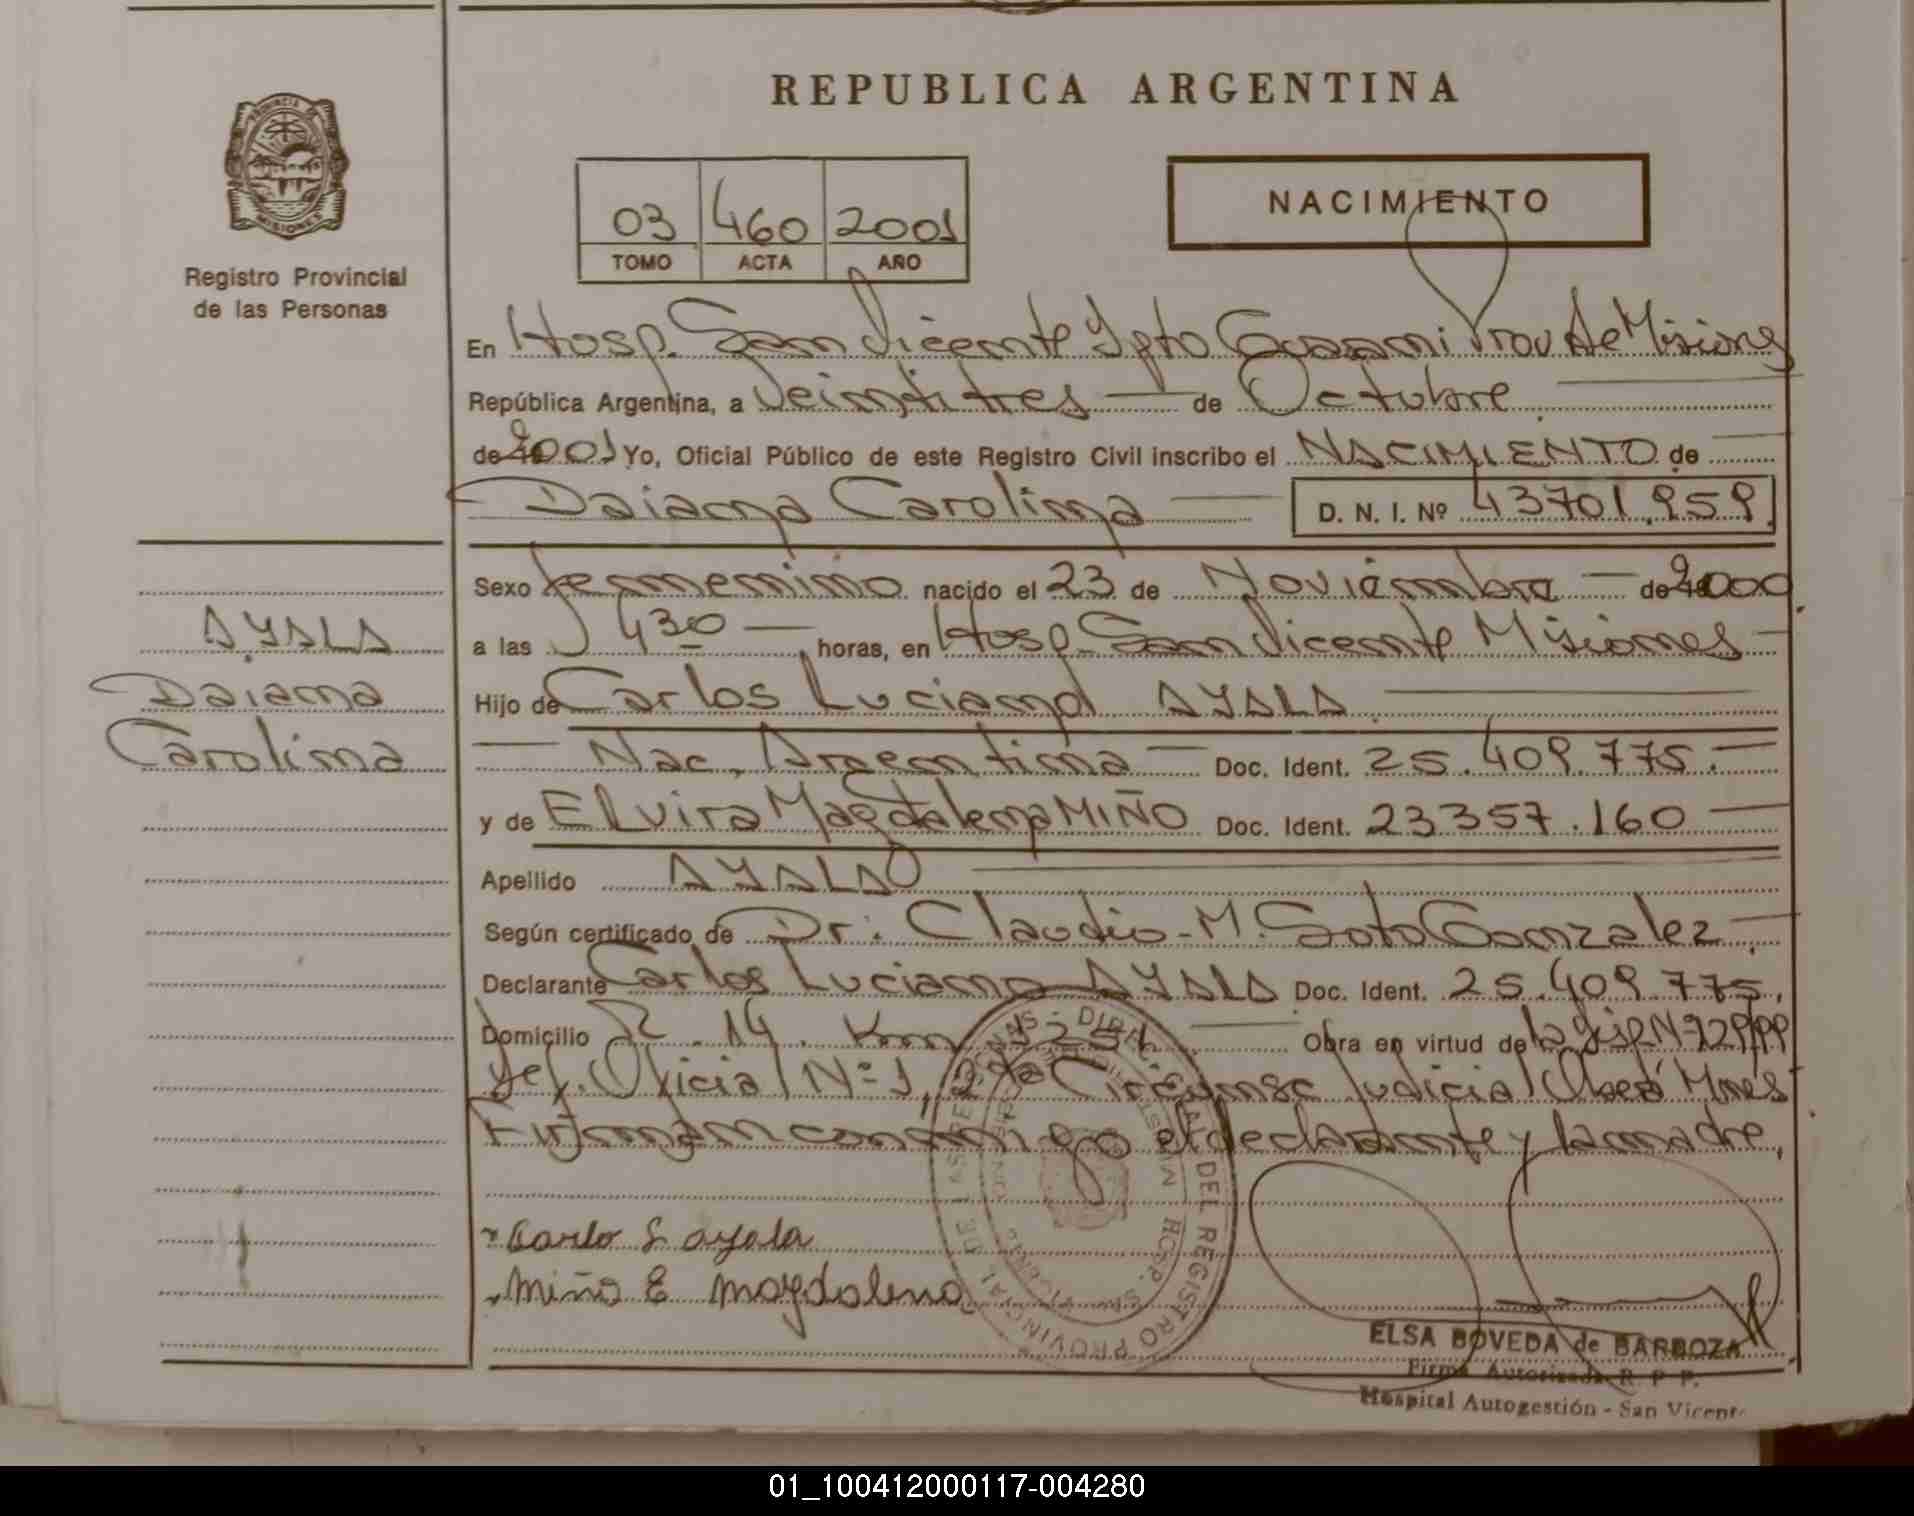 REPUBLICA ARGENTINA
PROVINCIA DE
MISIONES
Registro Provincial
de las Personas
03 460 2001
TOMO ACTA AÑO
NACIMIENTO
En Hosp. San Vicente Dpto Guarani Prov de Misiones
República Argentina, a Veintitres de Octubre
de 2001 Yo, Oficial Público de este Registro Civil inscribo el NACIMIENTO de
Daiana Carolina D. N. I. Nº 43701.959
Sexo femenino nacido el 23 de Noviembre de 2000
a las 430 horas, en Hosp. San Vicente Misiones
AYALA
Daiana
Carolina
Hijo de Carlos Luciano AYALA
Nac. Argentina Doc. Ident. 25.409.775.
y de Elvira Magdalena MIÑO Doc. Ident. 23357.160
Apellido AYALA
Según certificado de Dr. Claudio M. Soto Gonzalez
Declarante Carlos Luciano AYALA Doc. Ident. 25.409.775,
Domicilio R. 14. Km 1251 Obra en virtud de
Def. Oficial Nº 1, 2da Circunsc Judicial Oberá Mnes
Firman conmigo el declarante y la madre,
Carlo L ayala
Miño E magdalena
DIRECCION GENERAL DEL REGISTRO PROVINCIAL DE LAS PERSONAS
HOSP. SAN VICENTE
ELSA BOVEDA de BARBOZA
Firma Autorizada R. P. P.
Hospital Autogestión - San Vicente
01_100412000117-004280